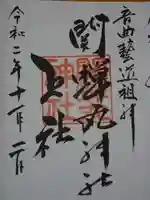 音曲藝道祖神
関蟬丸神社
社
令和二年十一月二日